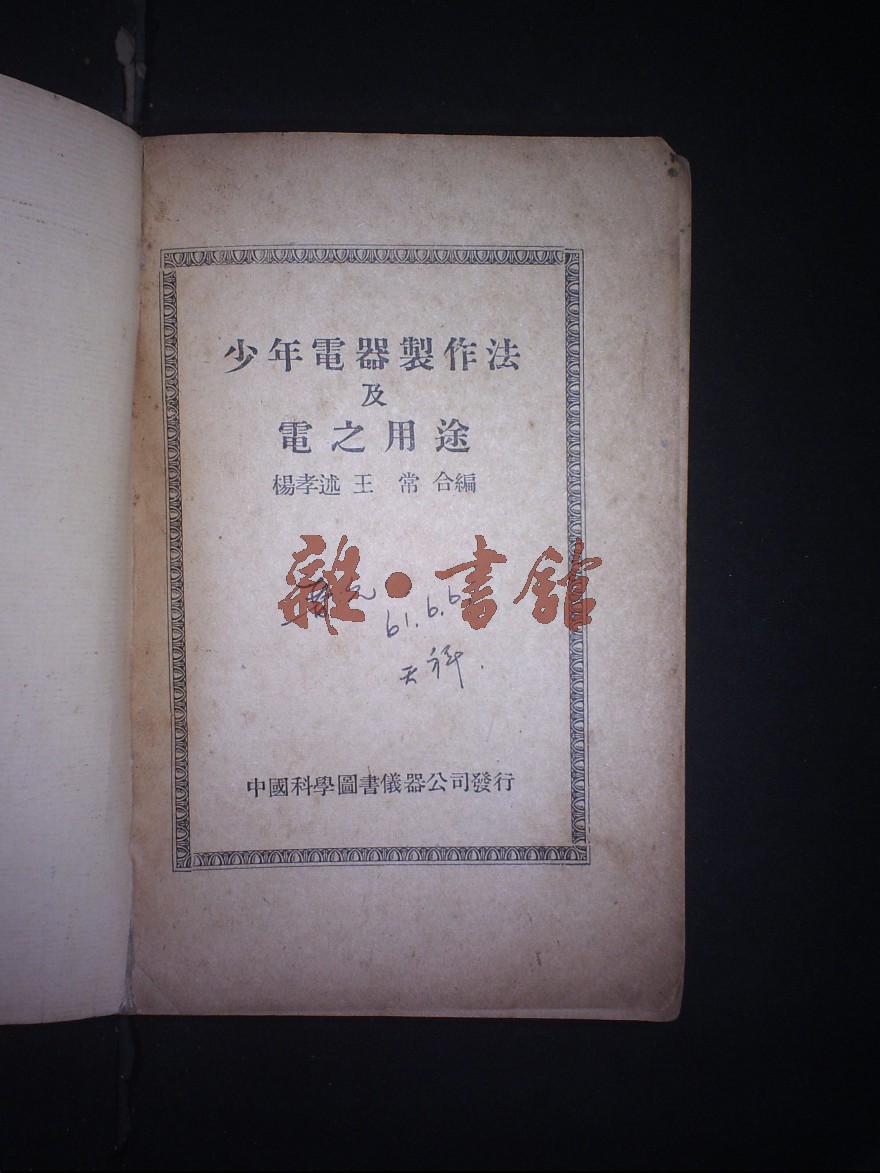 少年電器製作法
及
電之用途
楊孝述 王 常 合編
雜·書館
61.6.6
天祥.
中國科學圖書儀器公司發行